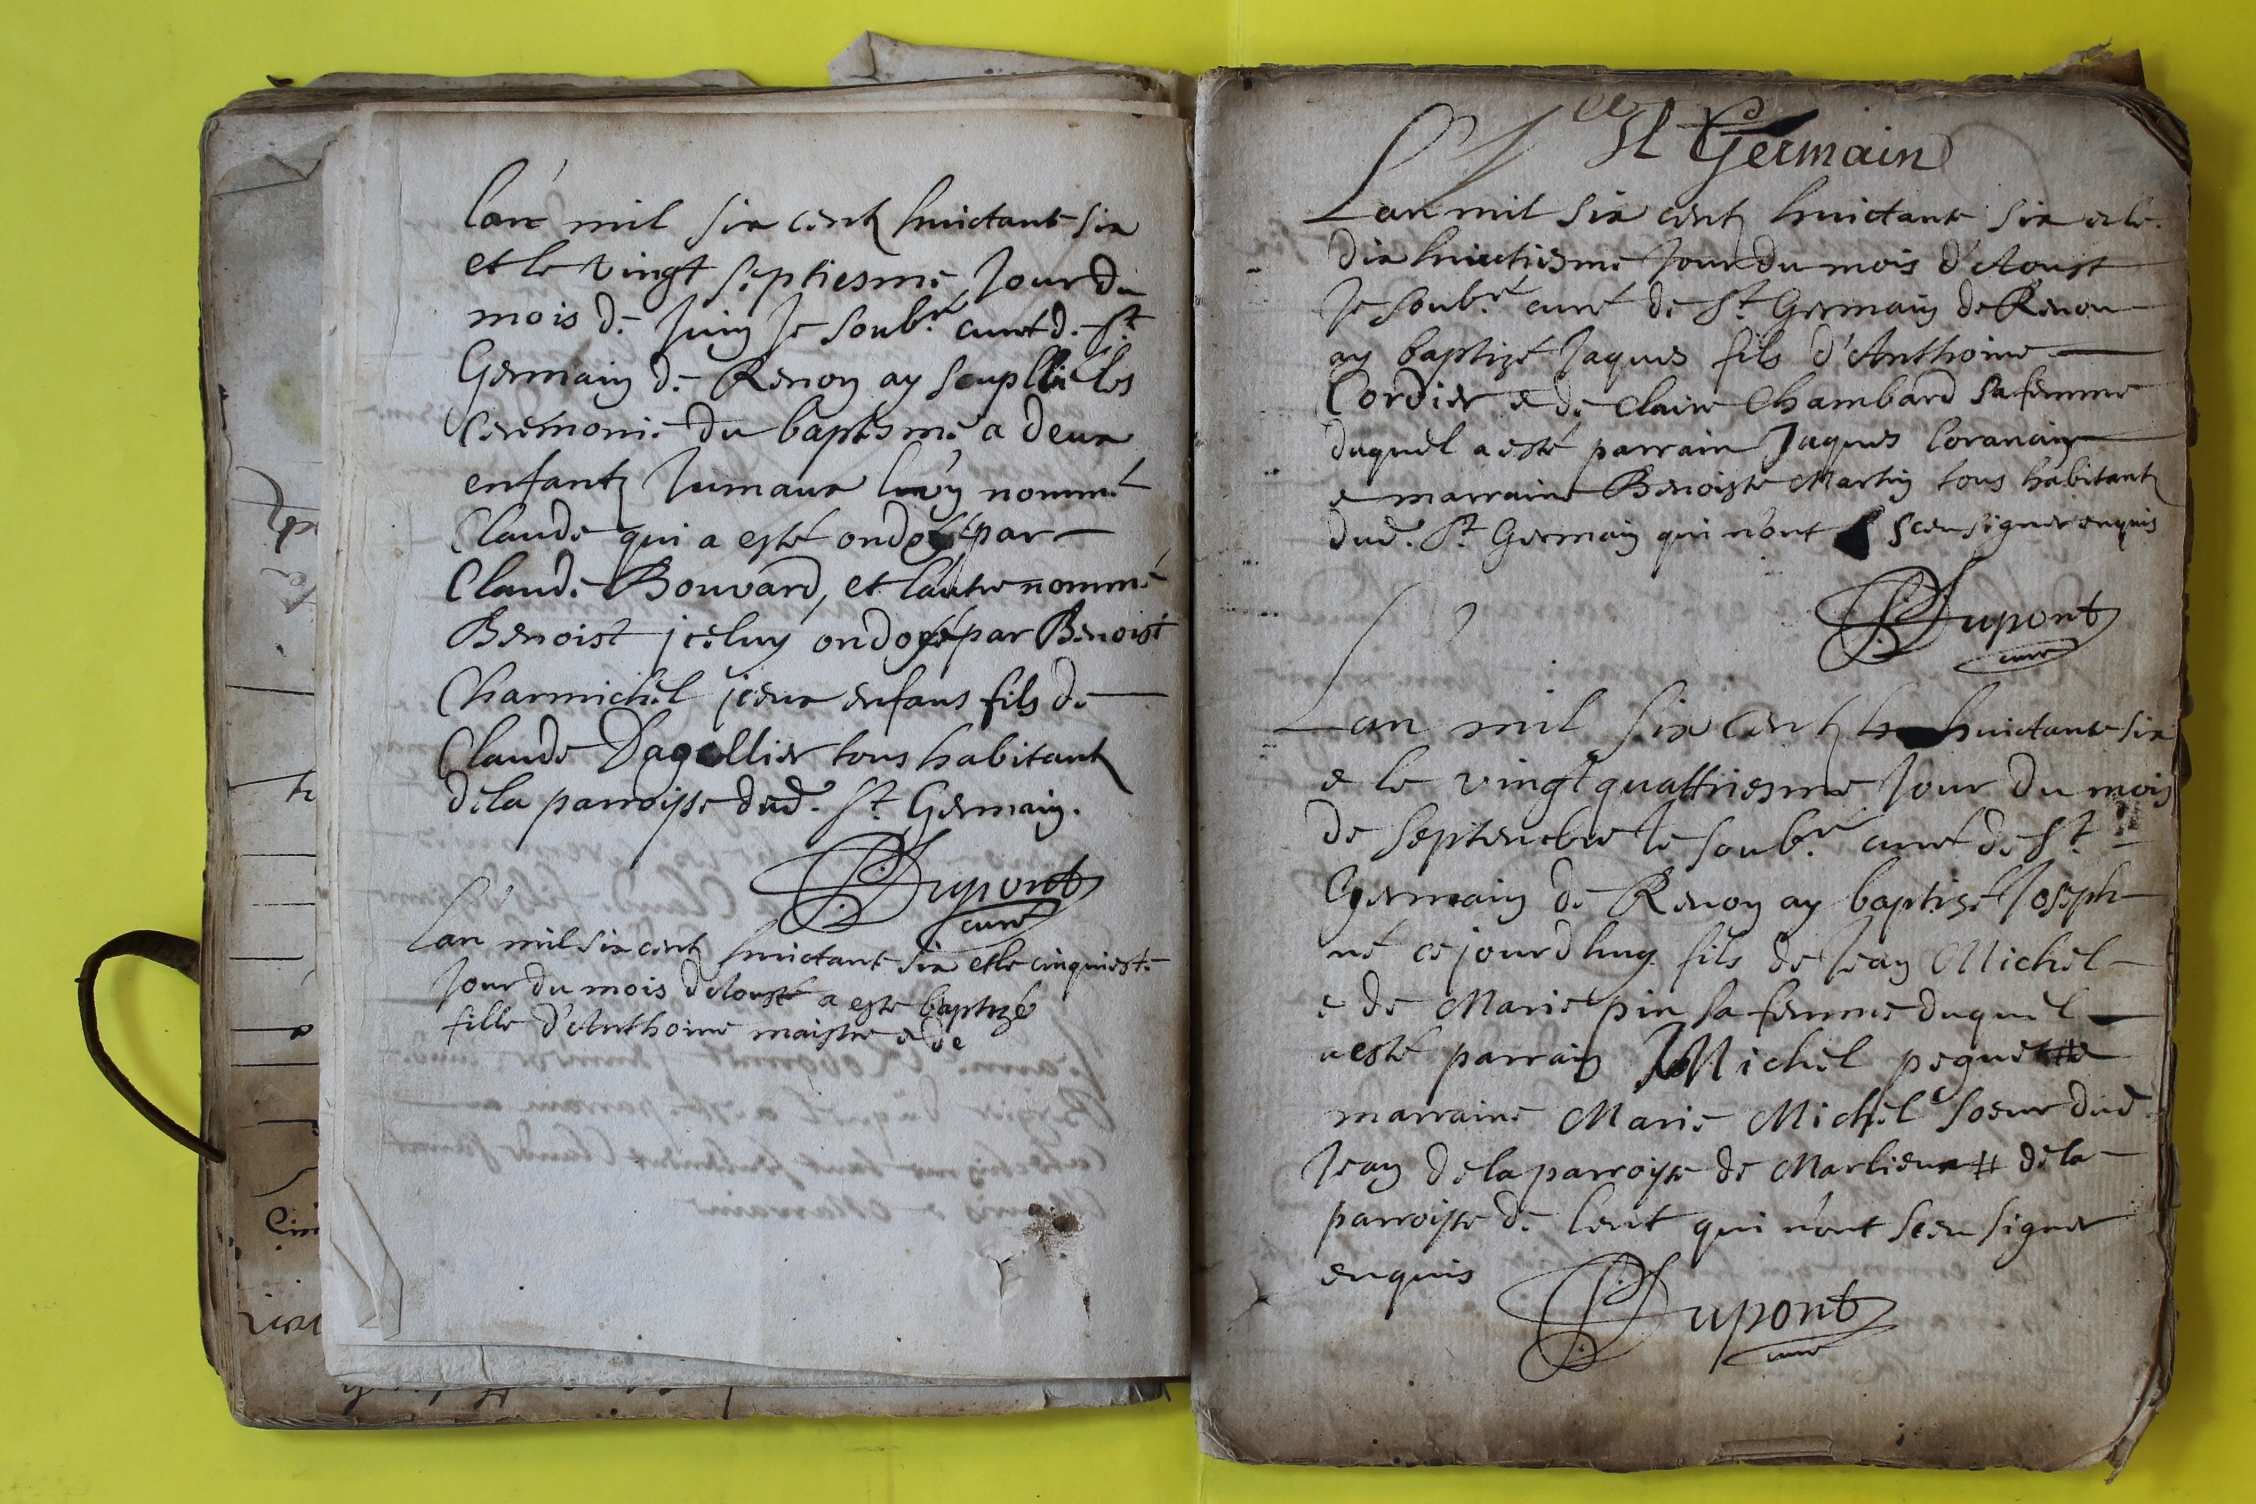 lan mil six centz huictante six
et le vingt septiesme jour du
mois de Juin je soubné curé de St
Germain de Renon ay supplié les
ceremonie du baptesme a deux
enfantz Jumaux l'un nommé
Claude qui a esté ondoyé par
Claude Bouvard, et lautre nommé
Benoist jceluy ondoyé par Benoist
Charmichel jceux enfans fils de
Claude Dagallier tous habitantz
de la parroisse dud. St Germain.
Dupont
curé
Lan mil six centz huictante six et le cinquieste
Jour du mois d'Aoust a este baptizé
fille d'Anthoine maistre e de
St Germain
Lan mil six centz huictante six e le
dix huictiesme Jour du mois d'Aoust
Je soubné curé de St Germain de Renon
ay baptizé Jaques fils d'Anthoine
Cordier e de Claire Chambard sa femme
duquel a esté parrain Jaques
e marraine Benoiste Martin tous habitantz
dud. St Germain qui n'ont sceu signer enquis
Dupont
curé
Lan mil six centz huictante six
e le vingt quattriesme Jour du mois
de Septembre Je soubné curé de St
Germain de Renon ay baptizé Joseph
né cejourdhuy fils de Jean Michel
e de Marie pin sa femme duquel
a esté parrain Michel peguet # e
marraine Marie Michel soeur dud.
Jean de la parroisse de Marlieux # de la
parroisse de Lent qui n'ont sceu signer
enquis
Dupont
curé